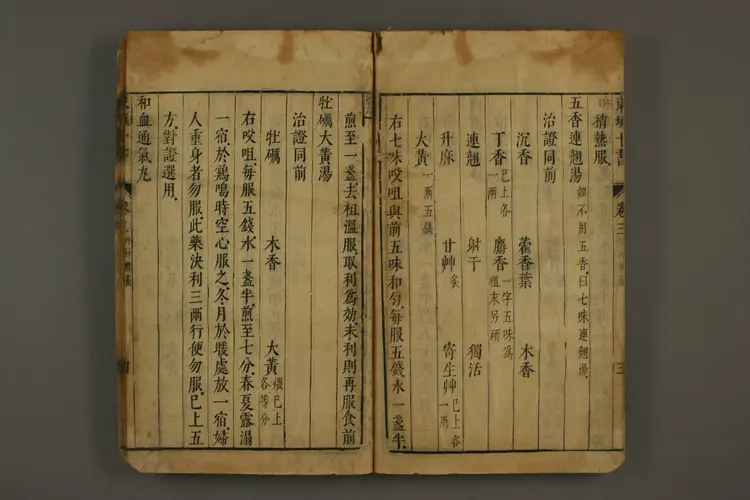 稍熱服
五香連翹湯 如不用五香曰七味連翹湯
治證同前
沉香 藿香葉 木香
丁香已上各一兩 麝香一字五味爲麤末另研
連翹 射干 獨活
升麻 甘艸炙 寄生艸已上各一兩
大黃一兩五錢
右七味㕮咀與前五味和勻每服五錢水一盞半
煎至一盞去柤溫服取利爲効未利則再服食前
牡礪大黃湯
治證同前
牡礪 木香 大黃煨已上各等分
右㕮咀每服五錢水一盞半煎至七分春夏露㵼
一宿於鷄鳴時空心服之冬月於煖處放一宿婦
人重身者勿服此藥決利三兩行便勿服已上五
方對證選用
和血通氣丸
東垣十書
卷三
三